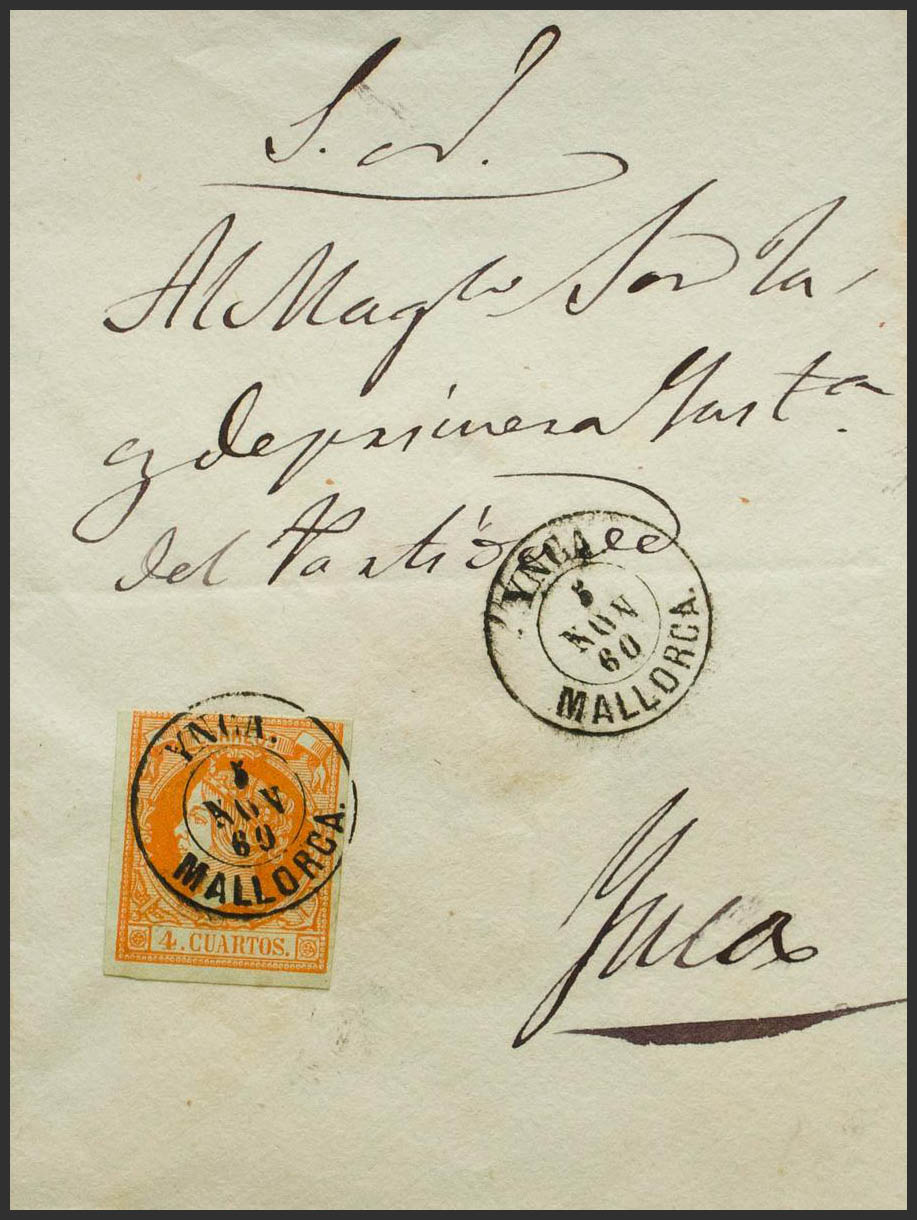 S. N.
Al Mag.co Sor
de primera Ynst.a
del Partido de
YNCA.
5
NOV
60
MALLORCA.
YNCA.
5
NOV
60
MALLORCA.
4. CUARTOS.
Ynca